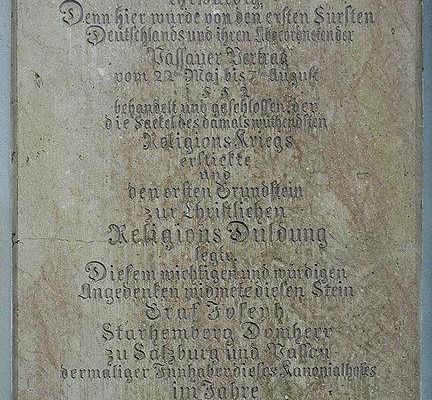 ehrwürdig,
Denn hier wurde von den ersten Fürsten
Deutschlands und ihren Abgeordneten der
Passauer Vertrag
vom 22ten Maj bis 7ten August
1552
behandelt und geschlossen, der
die Fackel des damals wüthendsten
Religions-Kriegs
erstickte
und
den ersten Grundstein
zur Christlichen
Religions Duldung
legte.
Diesem wichtigen und würdigen
Angedenken widmete diesen Stein
Graf Joseph
Starhemberg Domherr
zu Salzburg und Passau
dermaliger Innhaber dieses Kanonialhofes
im Jahre